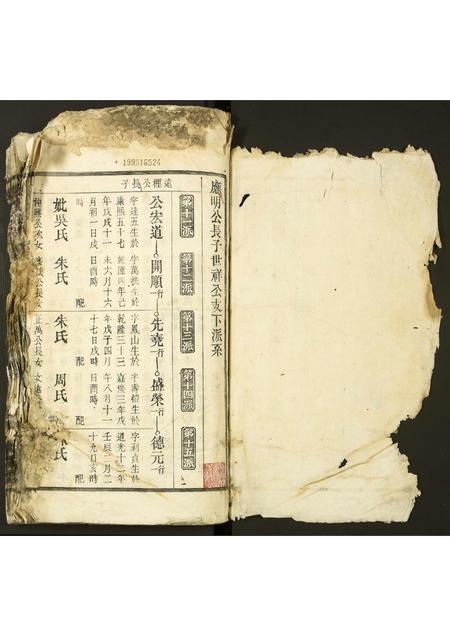 199516524
應明公長子世祥公支下派系
第十一派
第十二派
第十三派
第十四派
第十五派
遠櫃公長子
公宏道
開順行一
先堯行一
盛榮行一
德元行一
字達五生於
康熙五十七
年戊戌十一
月初一日戌
時
字萬拱生於
乾隆四年己
未六月十六
日酉時
配
字鳳山生於
乾隆三十三
年戊子四月
十七日戌時
配
字壽榰生於
嘉慶三年戊
午八月十一
日酉時
配
字利貞生於
道光十二年
壬辰二月二
十九日亥時
配
妣吳氏
朱氏
朱氏
周氏
氏
公次女
公長女
正萬公長女